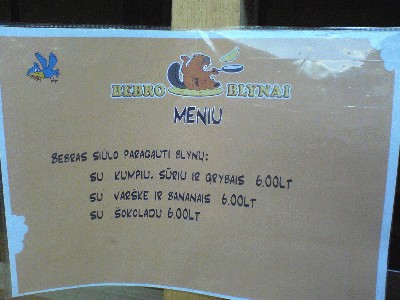 BEBRO BLYNAI
MENIU
BEBRAS SIŪLO PARAGAUTI BLYNŲ:
SU KUMPIU, SŪRIU IR GRYBAIS 6.00LT
SU VARŠKE IR BANANAIS 6.00LT
SU ŠOKOLADU 6.00LT